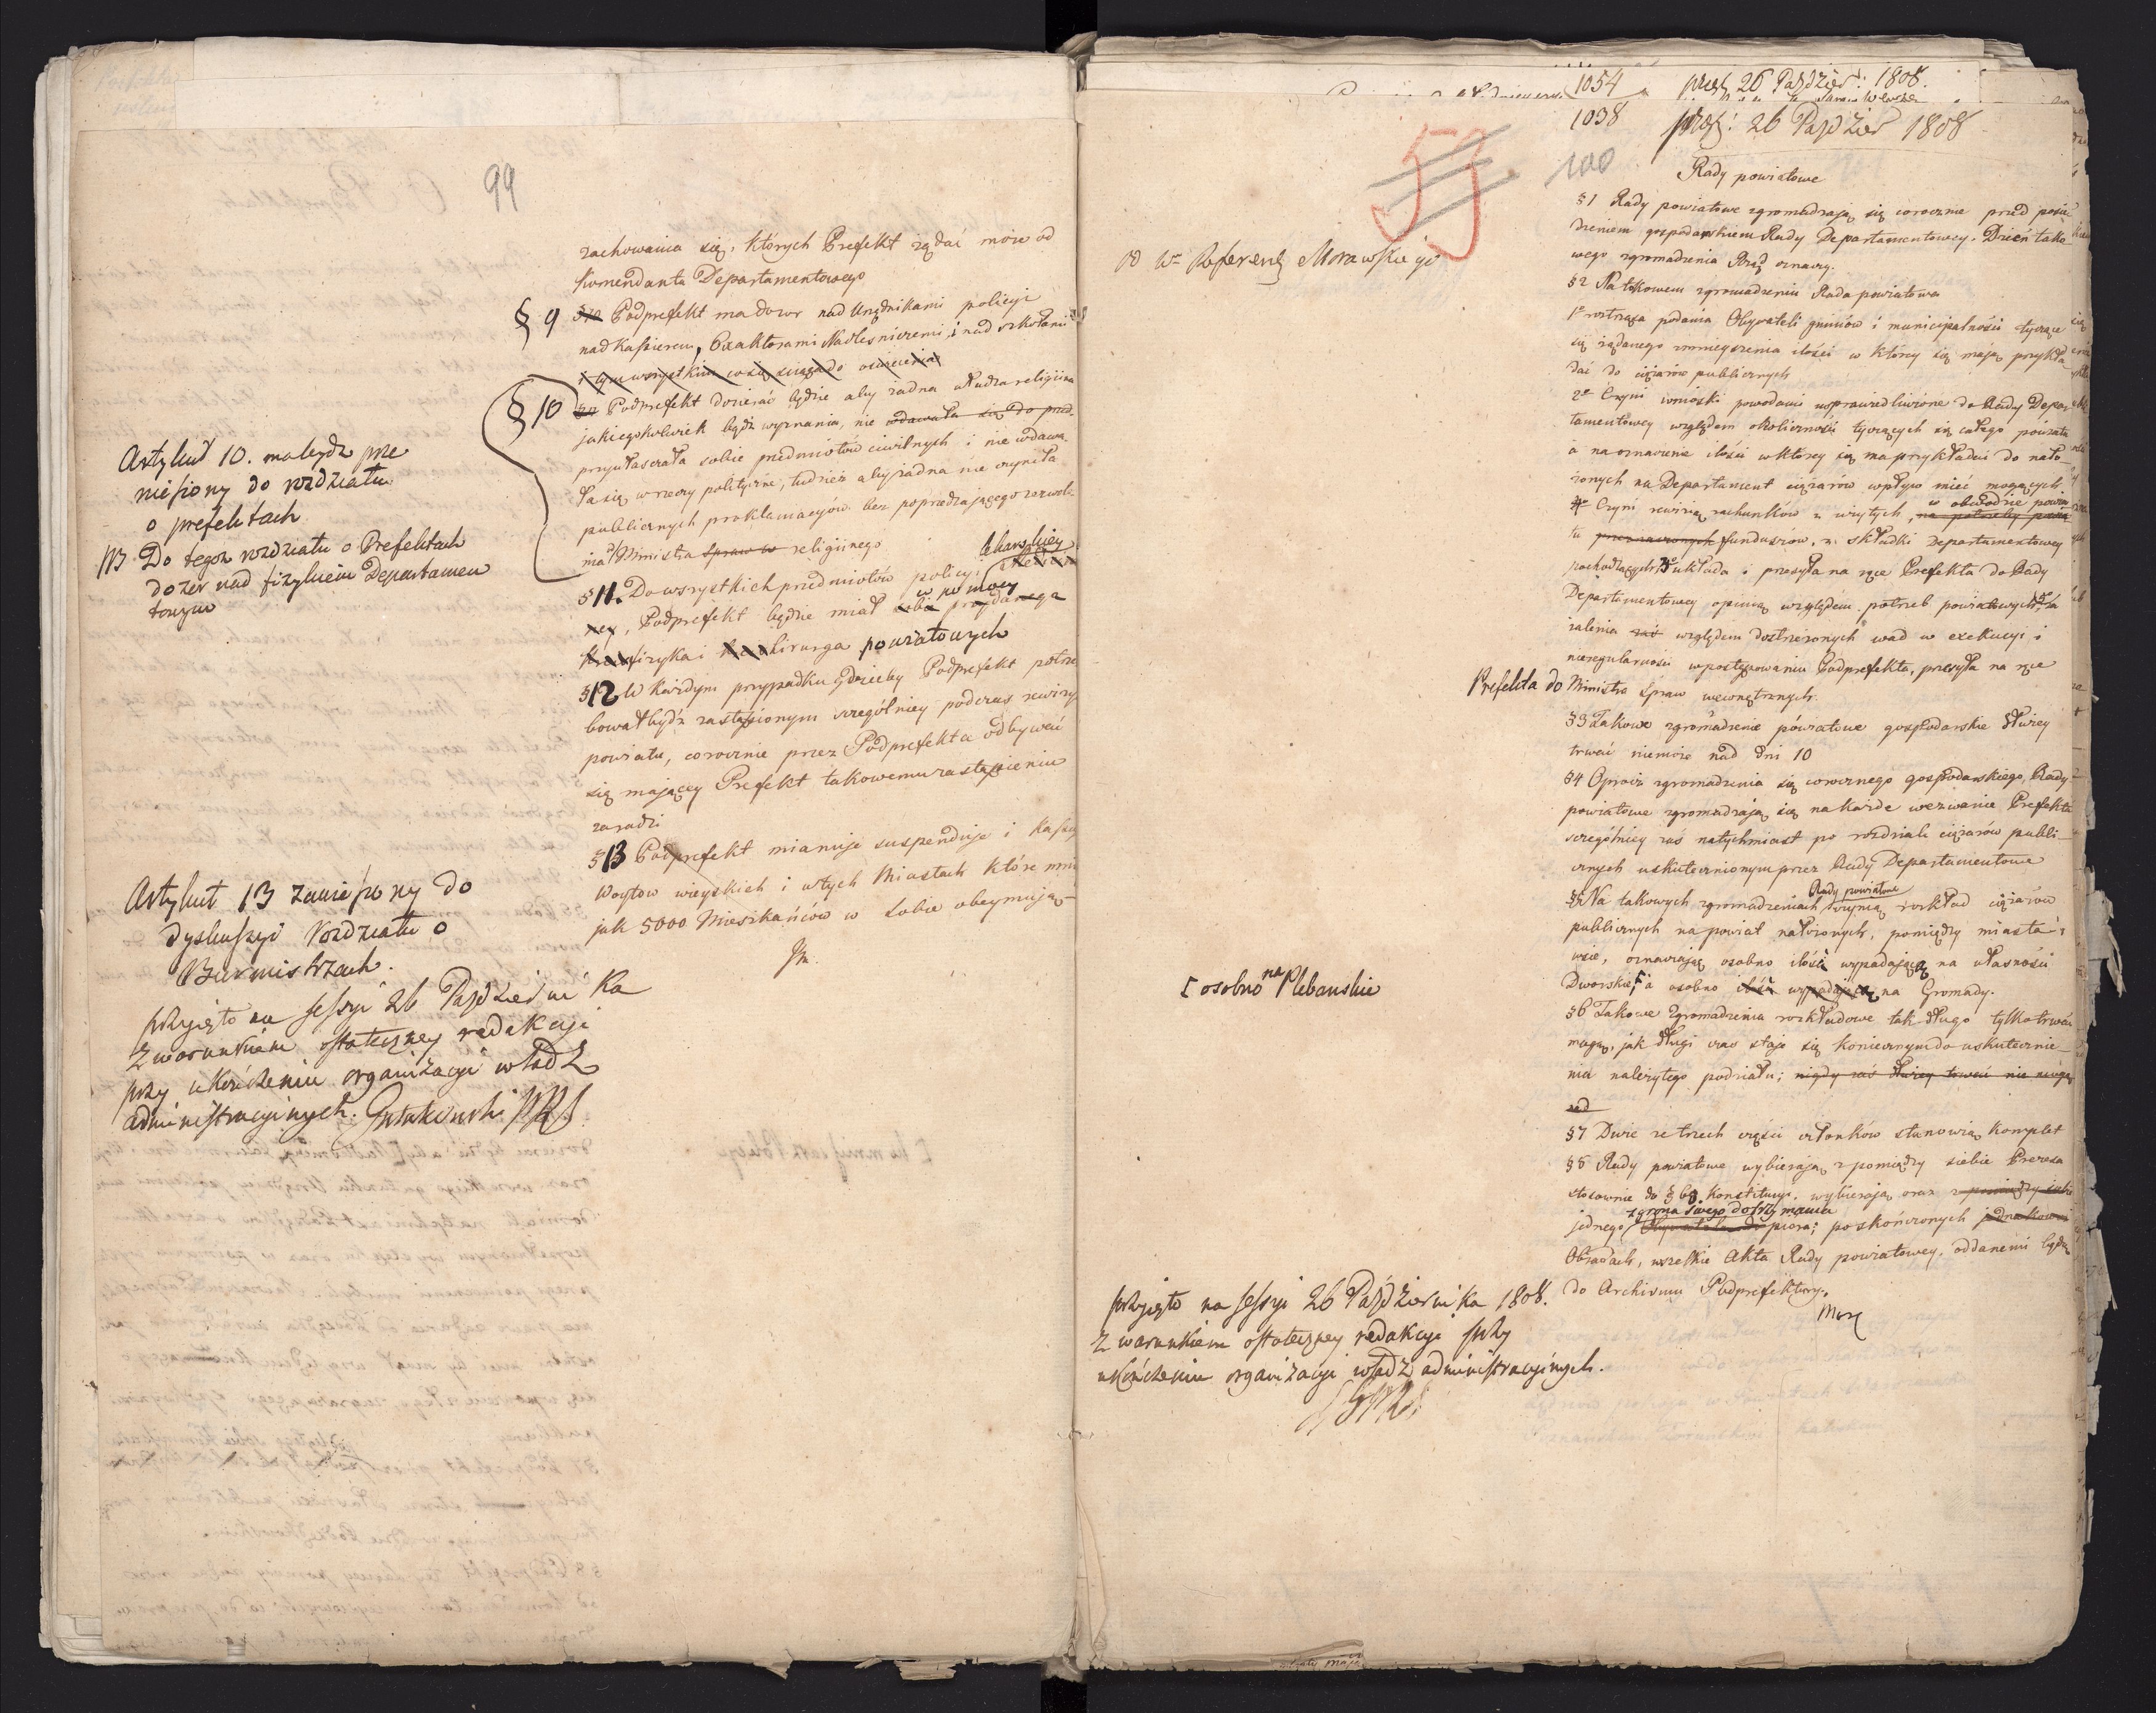 99
zachowania się, których Prefekt żądać może od
komendanta Departamentowego
§ 9 Podprefekt ma dozor nad Urzędnikami policyi
nad Kassierem, Exaktorami Nadlesniczemi, i nad szkołami
i tym wszystkim co się ściąga do oświecenia
§ 10 Podprefekt dozierać będzie aby żadna władza religiina
jakiegokolwiek bądź wyznania, nie wdawała się do przed-
przywłaszczała sobie przedmiotów ciwilnych i nie wdawa-
ła się w rzeczy polityczne, tudzież aby żadna nie czyniła
publicznych proklamacyiów bez poprzedzającego zezwole
nia Ministra Spraw w religiinego
§ 11. Do wszystkich przedmiotów policyi lekarskiey
Podprefekt będzie miał sobie w pomocy przydanego
fizyka i Chirurga powiatowych
§ 12 W każdym przypadku gdzieby Podprefekt potrze
bował bydź zastąpionym szczególniey podczas rewizyi
powiatu, corocznie przez Podprefekta odbywać
się maiącey Prefekt takowemu zastąpieniu
zaradzi
§ 13 Podprefekt mianuje suspenduje i kassuje
Woytow wieyskich i w tych Miastach które mniey
jak 5000 Mieszkańców w sobie obeymują
Artykuł 10. ma bydz prze
niesiony do rozdziału
o prefektach
NB Do tegoż rozdziału o Prefektach
dozor nad fizykiem Departamen
towym
Artykuł 13 zawieszony do
dyskussyi Rozdziału o
Burmistrzach.
przyięto na sessyi 26 Październi ka
z warunkiem ostateczney redakcyi
przy ukończeniu organizacyi władz
administracyinych. Gutakowski PRS
1054 prez 26 Paździer: 1808.
1038 prez: 26 Paździer 1808
100
53
od Wo Referenda Morawskiego
Rady powiatowe
§ 1 Rady powiatowe zgromadzają się corocznie przed posie
dzeniem gospodarskiem Rady Departamentowey. Dzień tako
wego zgromadzenia Rząd oznaczy.
§ 2 Na takowem zgromadzeniu Rada powiatowa
1o roztrząsa podania Obywateli gminów i municipalności tyczące
się żądanego zmnieyszenia ilości w którey się mają przykła
dać do ciężarów publicznych
2o Czyni wnioski powodami usprawiedliwione do Rady Depar
tamentowey względem okoliczności tyczących się całego powiatu
a na oznaczenie ilości w którey się ma przykładać do nało-
żonych na Departament ciężarów wpływ mieć mogących
Czyni rewizią rachunków z użytych, w obwodzie powia
tu przeznaczonych funduszów, z składki Departamentowey
pochodzących, układa i przesyła na ręce Prefekta do Rady
Departamentowey opinią względem potrzeb powiatowych, za
żalenia zaś względem dostrzeżonych wad w exekucyi i
nieregularności w postępowaniu Podprefekta, przesyła na ręce
Prefekta do Ministra Spraw wewnętrznych.
§ 3 Takowe zgromadzenie powiatowe gospodarskie dłużey
trwać niemoże nad dni 10
§ 4 Oprócz zgromadzenia się corocznego gospodarskiego, Rady
powiatowe zgromadzają się na każde wezwanie Prefekta
szczególniey zaś natychmiast po rozdziale ciężarów publi
cznych uskutecznionym przez Rady Departamentowe
§ 5 Na takowych zgromadzeniach Rady powiatowe czynią rozkład ciężarów
publicznych na powiat nałożonych, pomiędzy miasta i
wsie, oznaczając osobno ilość wypadającą na własności
Dworskie, [ a osobno ilość wypadającą na Gromady.
[ osobno na Plebanskie
§ 6 Takowe Zgromadzenia rozkładowe tak długo tylko trwać
mogą, jak długi czas staje się koniecznym do uskutecznie-
nia należytego podziału; nigdy zaś dłużey trwać nie mogą
nad
§ 7 Dwie ze trzech części członków stanowią komplet
§ 8 Rady powiatowe wybierają z pomiędzy siebie Prezesa
stosownie do § 60. Konstitucyi. wybierają oraz z pomiędzy siebie
jednego z grona swego do trzymania piora; po skończonych jednakowo
Obradach, wszelkie Akta Rady powiatowey, oddanemi będą
do Archiwum Podprefektury.
Mor
przyięto na sessyi 26 Października 1808.
z warunkiem ostateczney redakcyi przy
ukończeniu organizacyi władz administracyinych.